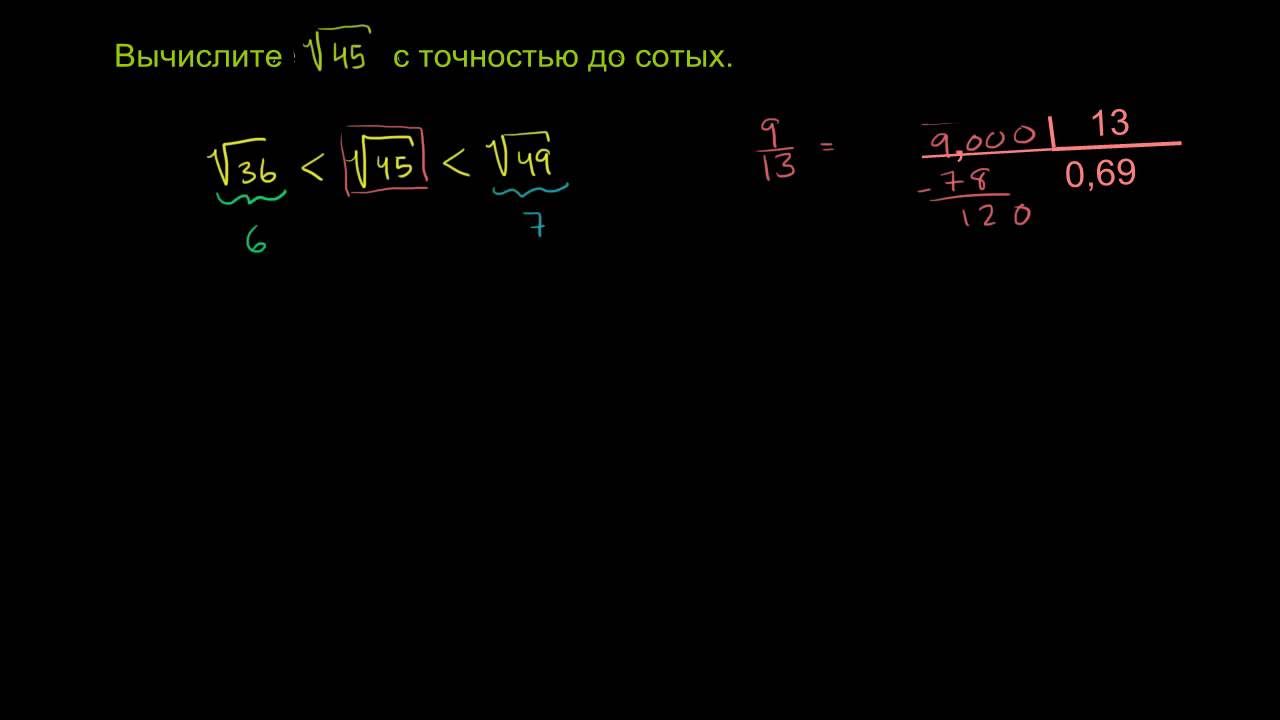 Вычислите √45 с точностью до сотых.
√36 < √45 < √49
6 7
9/13 =
9,000 | 13
-78 0,69
120